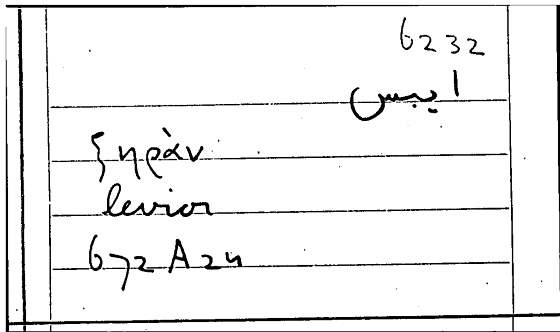 6232
ايبس
ξηρὰν
levior
672 A 24